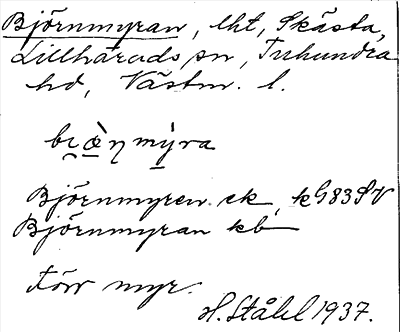 Björnmyran, lht, Skästa,
Lillhärads sn, Tuhundra
hd, Västm. l.
Björnmyren ek, kG83SV
Björnmyran kb
Förr myr.
H. Ståhl 1937.